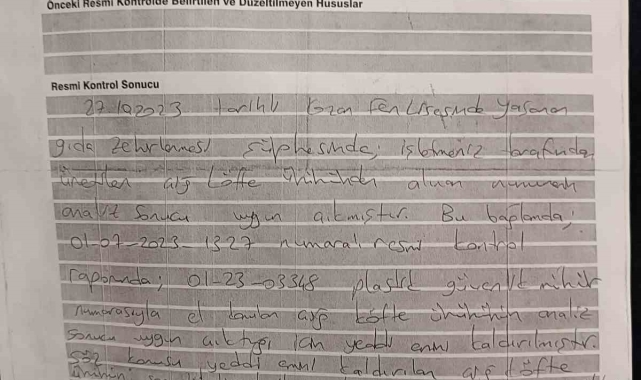 Önceki Resmi Kontrolde Belirtilen ve Düzeltilmeyen Hususlar
Resmi Kontrol Sonucu
27.10.2023 tarihli Kozan Fen Lisesinde Yaşanan
gıda Zehirlenmesi şüphesinde; işletmeniz tarafından
üretilen çiğ köfte ürününden alınan numunenin
analiz sonucu uygun çıkmıştır. Bu bağlamda;
01-07-2023-1327 numaralı resmi kontrol
raporunda; 01-23-03348 plastik güvenlik mühür
numarasıyla el konulan çiğ köfte ürününün analiz
sonucu uygun çıktığı için yeddi emin kaldırılmıştır.
Söz konusu yeddi emini kaldırılan çiğ köfte
ürünün